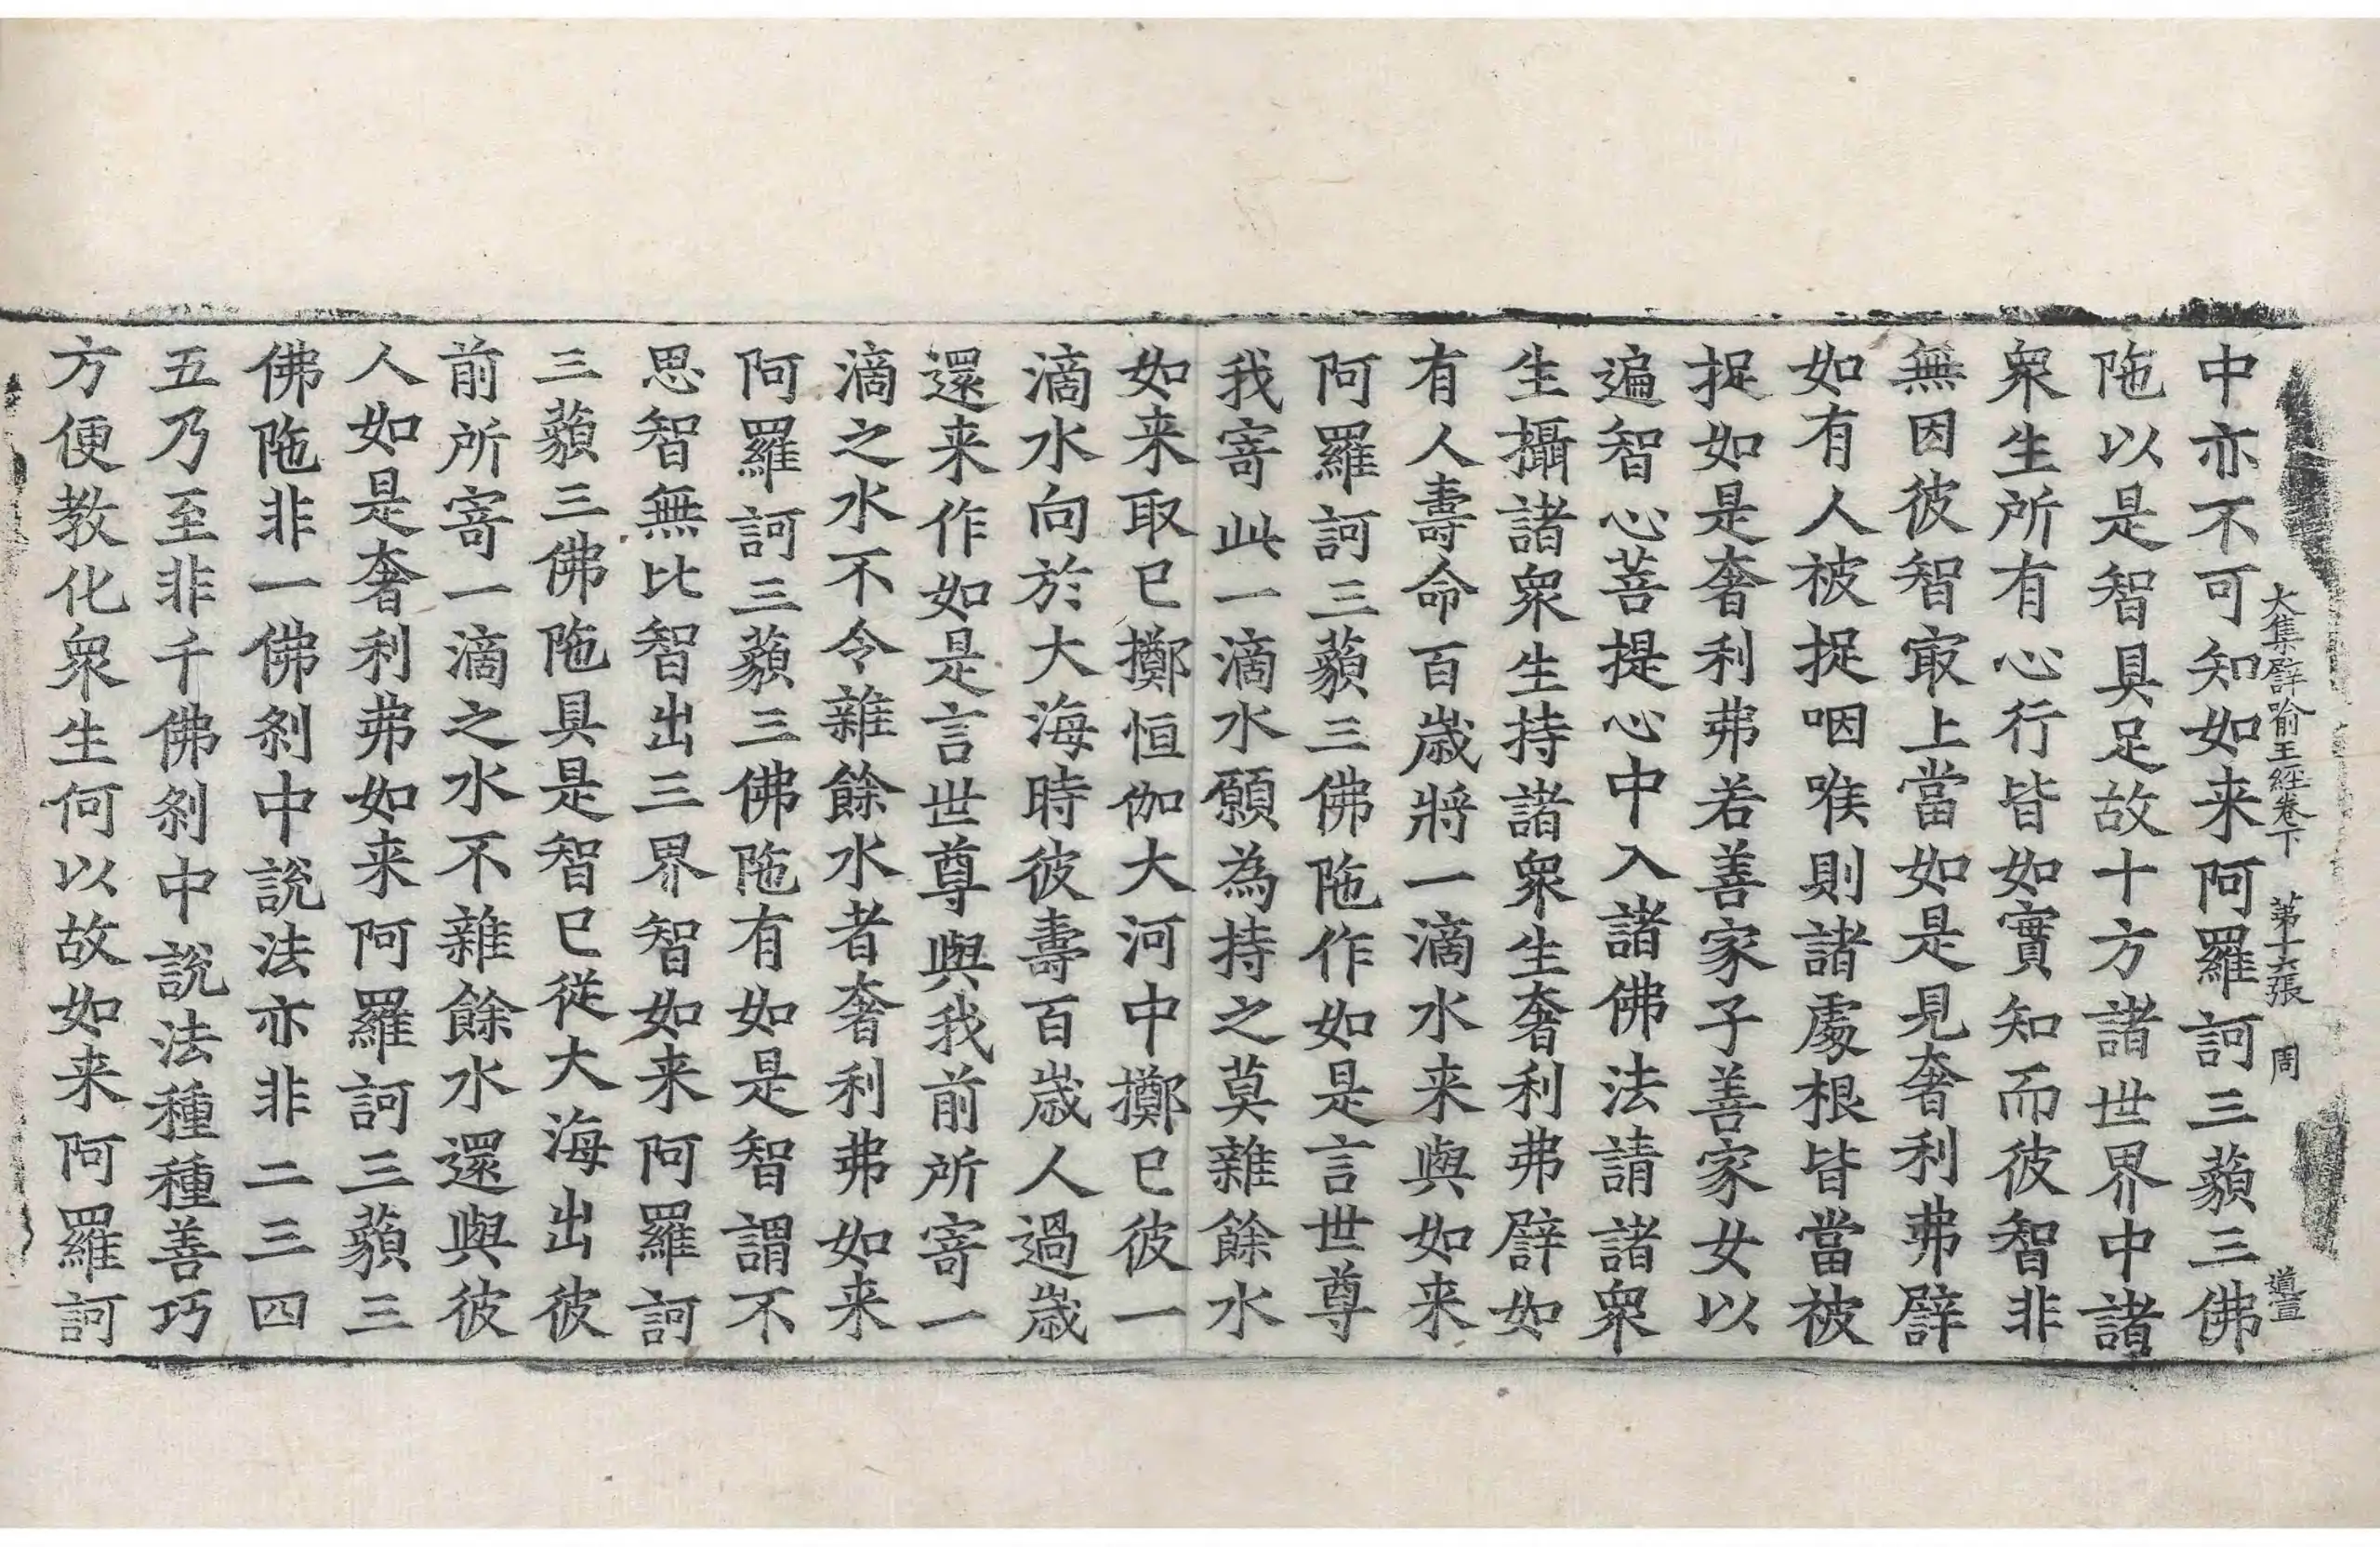 大集譬喻王經卷下　第十六張　周　道宣
中亦不可知如来阿羅訶三藐三佛
陁以是智具足故十方諸世界中諸
衆生所有心行皆如實知而彼智非
無因彼智㝡上當如是見奢利弗譬
如有人被捉咽喉則諸處根皆當被
捉如是奢利弗若善家子善家女以
遍智心菩提心中入諸佛法請諸衆
生攝諸衆生持諸衆生奢利弗譬如
有人壽命百歲將一滴水来與如来
阿羅訶三藐三佛陁作如是言世尊
我寄此一滴水願為持之莫雜餘水
如来取已擲恒伽大河中擲已彼一
滴水向於大海時彼壽百歲人過歲
還来作如是言世尊與我前所寄一
滴之水不令雜餘水者奢利弗如来
阿羅訶三藐三佛陁有如是智謂不
思智無比智出三界智如来阿羅訶
三藐三佛陁具是智已從大海出彼
前所寄一滴之水不雜餘水還與彼
人如是奢利弗如来阿羅訶三藐三
佛陁非一佛刹中說法亦非二三四
五乃至非千佛刹中說法種種善巧
方便教化衆生何以故如来阿羅訶